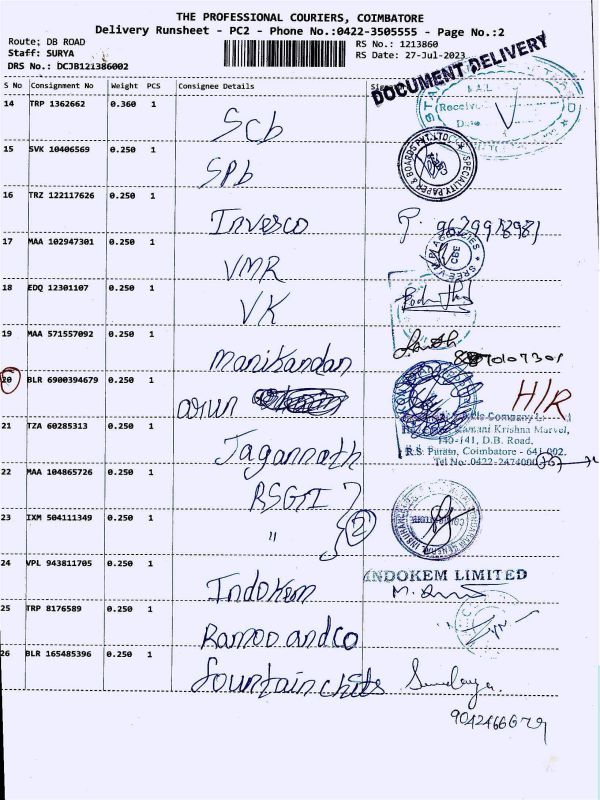 THE PROFESSIONAL COURIERS, COIMBATORE
Delivery Runsheet - PC2 - Phone No.:0422-3505555 - Page No.:2
Route: DB ROAD
Staff: SURYA
DRS No.: DCJB121386002
RS No.: 1213860
RS Date: 27-Jul-2023
DOCUMENT DELIVERY
S No Consignment No Weight PCS Consignee Details
14 TRP 1362662 0.360 1 Scb
15 SVK 10406569 0.250 1 SPb
SPECIALITY PAPER & BOARDS PVT.LTD.
16 TRZ 122117626 0.250 1 Invesco
17 MAA 102947301 0.250 1 VMR
CBE
18 EDQ 12301107 0.250 1 VK
19 MAA 571557092 0.250 1 Manikandan
20 BLR 6900394679 0.250 1 arun H/R
Krishna Marvel,
140-141, D.B. Road,
R.S. Puram, Coimbatore - 641 002.
Tel No: 0422-2474000
21 TZA 60285313 0.250 1 Jagannath
22 MAA 104865726 0.250 1 RSGI
23 IXM 504111349 0.250 1 " 2
24 VPL 943811705 0.250 1 Indokem
INDOKEM LIMITED
25 TRP 8176589 0.250 1 Ramoo and co
26 BLR 165485396 0.250 1 fountain chits